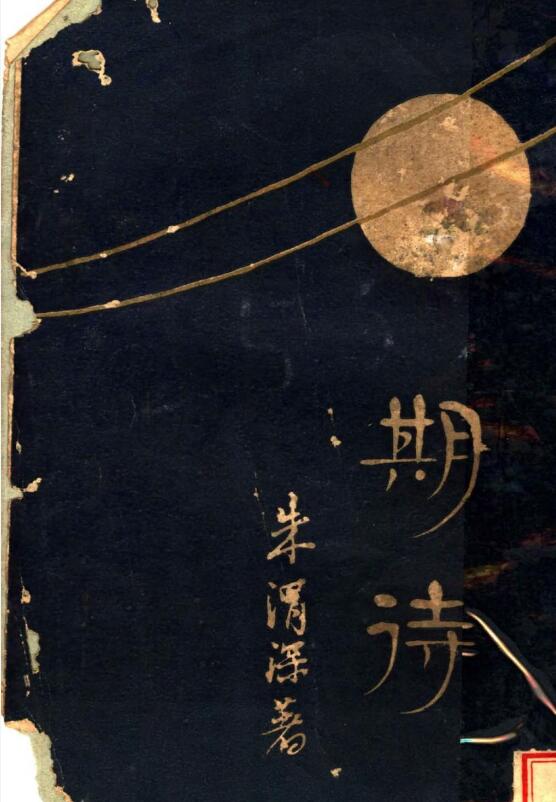 期待
朱渭深著